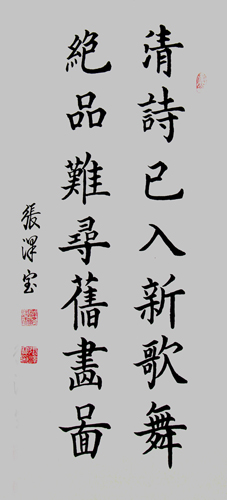 清詩已入新歌舞
絕品難尋舊畫啚
張澤宝